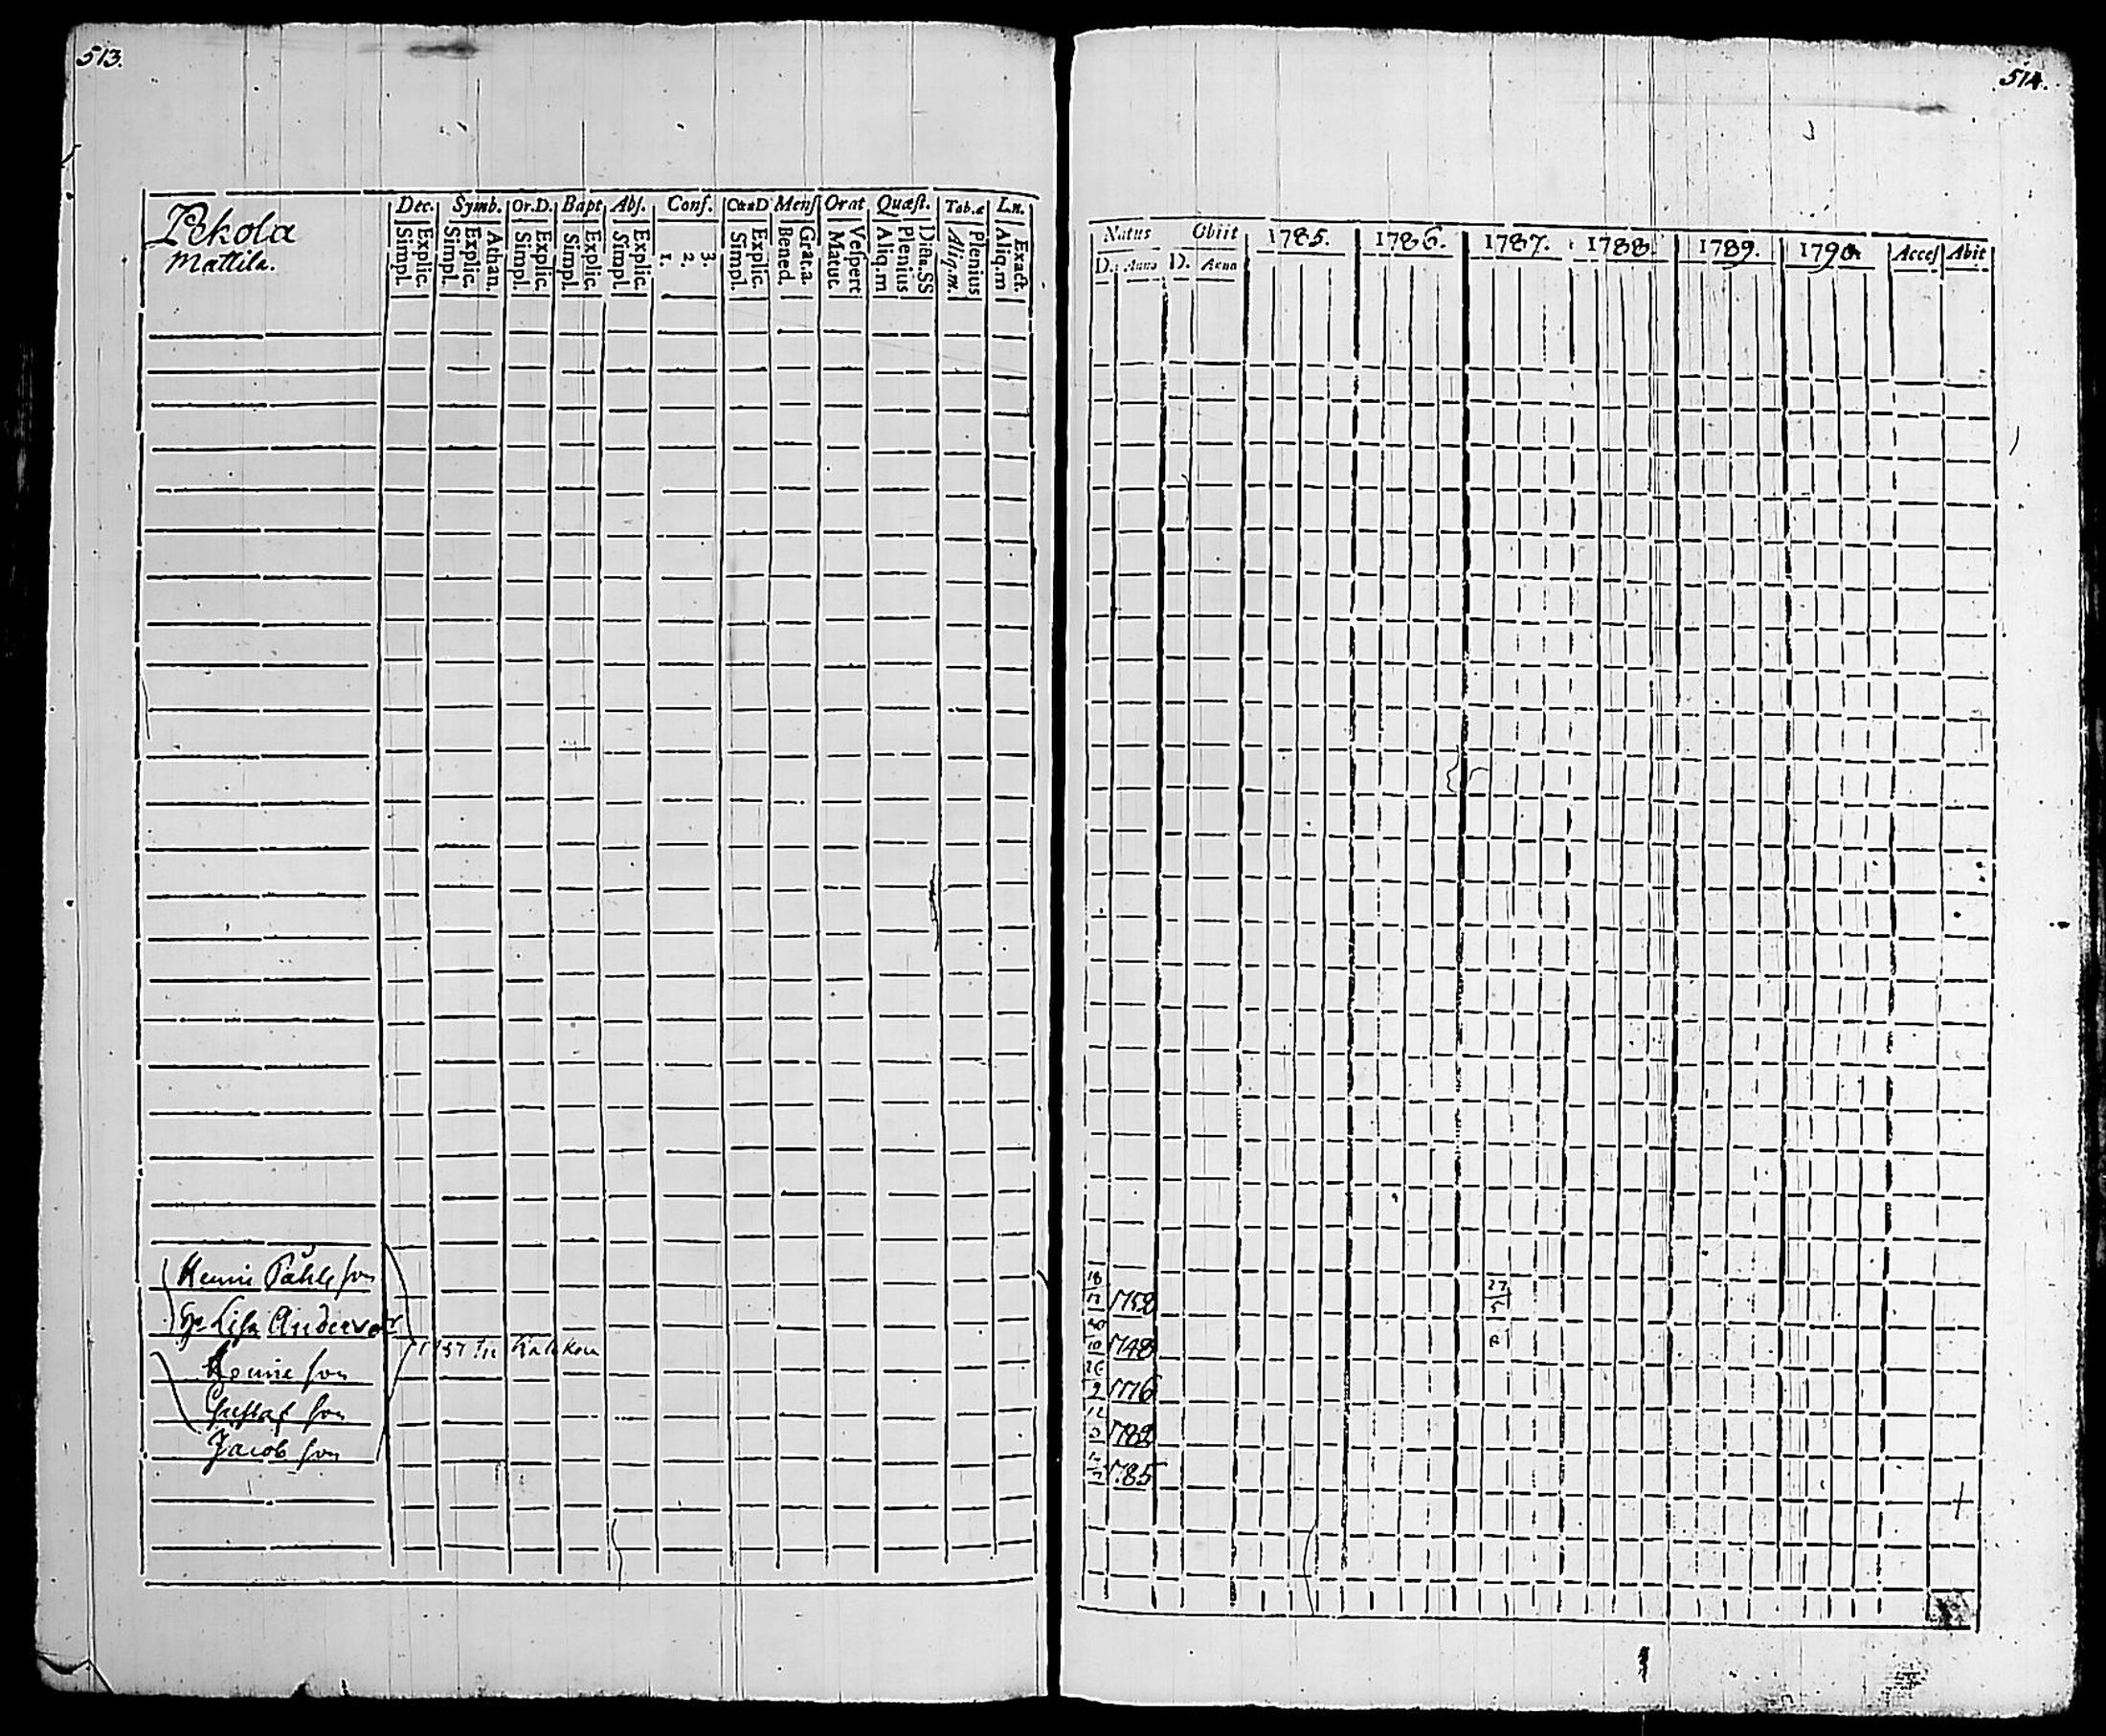 513.
Pekola
Mattila.
Dec. Symb. Or.D. Bapt Abs. Conf. CœnD Menſ Orat Quæſt. Tab.æ L.n.
Simpl. Explic. Simpl. Explic. Athan. Simpl. Explic. Simpl. Explic. Simpl. Explic. 1. 2. 3. Simpl. Explic. Bened. Grat.a. Matut. Veſpert Aliq.m Plenius Dicta.SS Aliq.m. Plenius Aliq.m Exact.
Henric Påhls son
H: Lisa Andersdr
Henric son
Gustaf son
Jacob son
514.
Natus Obiit 1785. 1786. 1787. 1788. 1789. 1790. Acceſ Abit
D. Anno D. Anno
1752 27/5
1748
26/9 1776
1782
1785